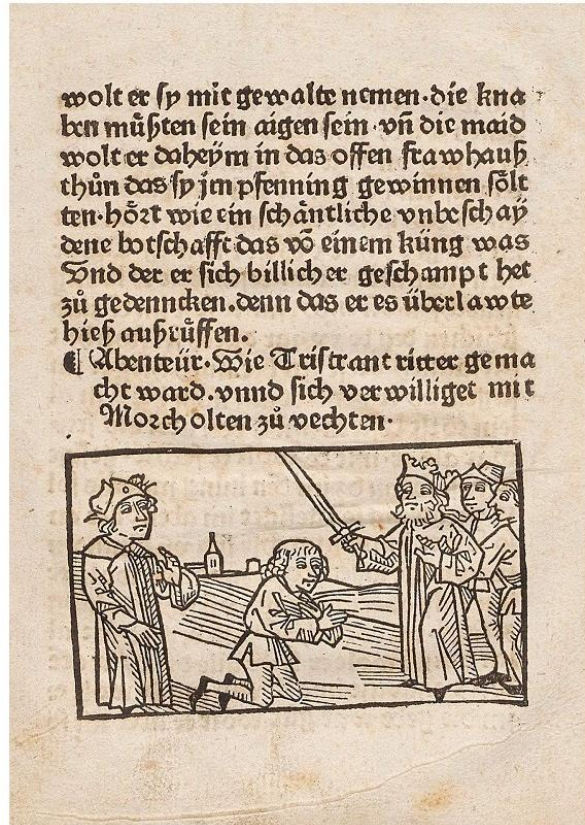 wolt er sy mit gewalte nemen·die kna
ben müßten sein aigen sein·vñ die maid
wolt er daheÿm in das offen frawhauß
thůn das sy jm pfenning gewinnen söll
ten·hört wie ein schäntliche vnbeschaÿ
dene botschafft das võ einem küng was
Vnd der er sich billicher geschampt het
zů gedenncken.denn das er es überlawte
hieß außrůffen.
¶ Abenteür·Wie Tristrant ritter gema
cht ward.vnnd sich verwilliget mit
Morcholten zů vechten·